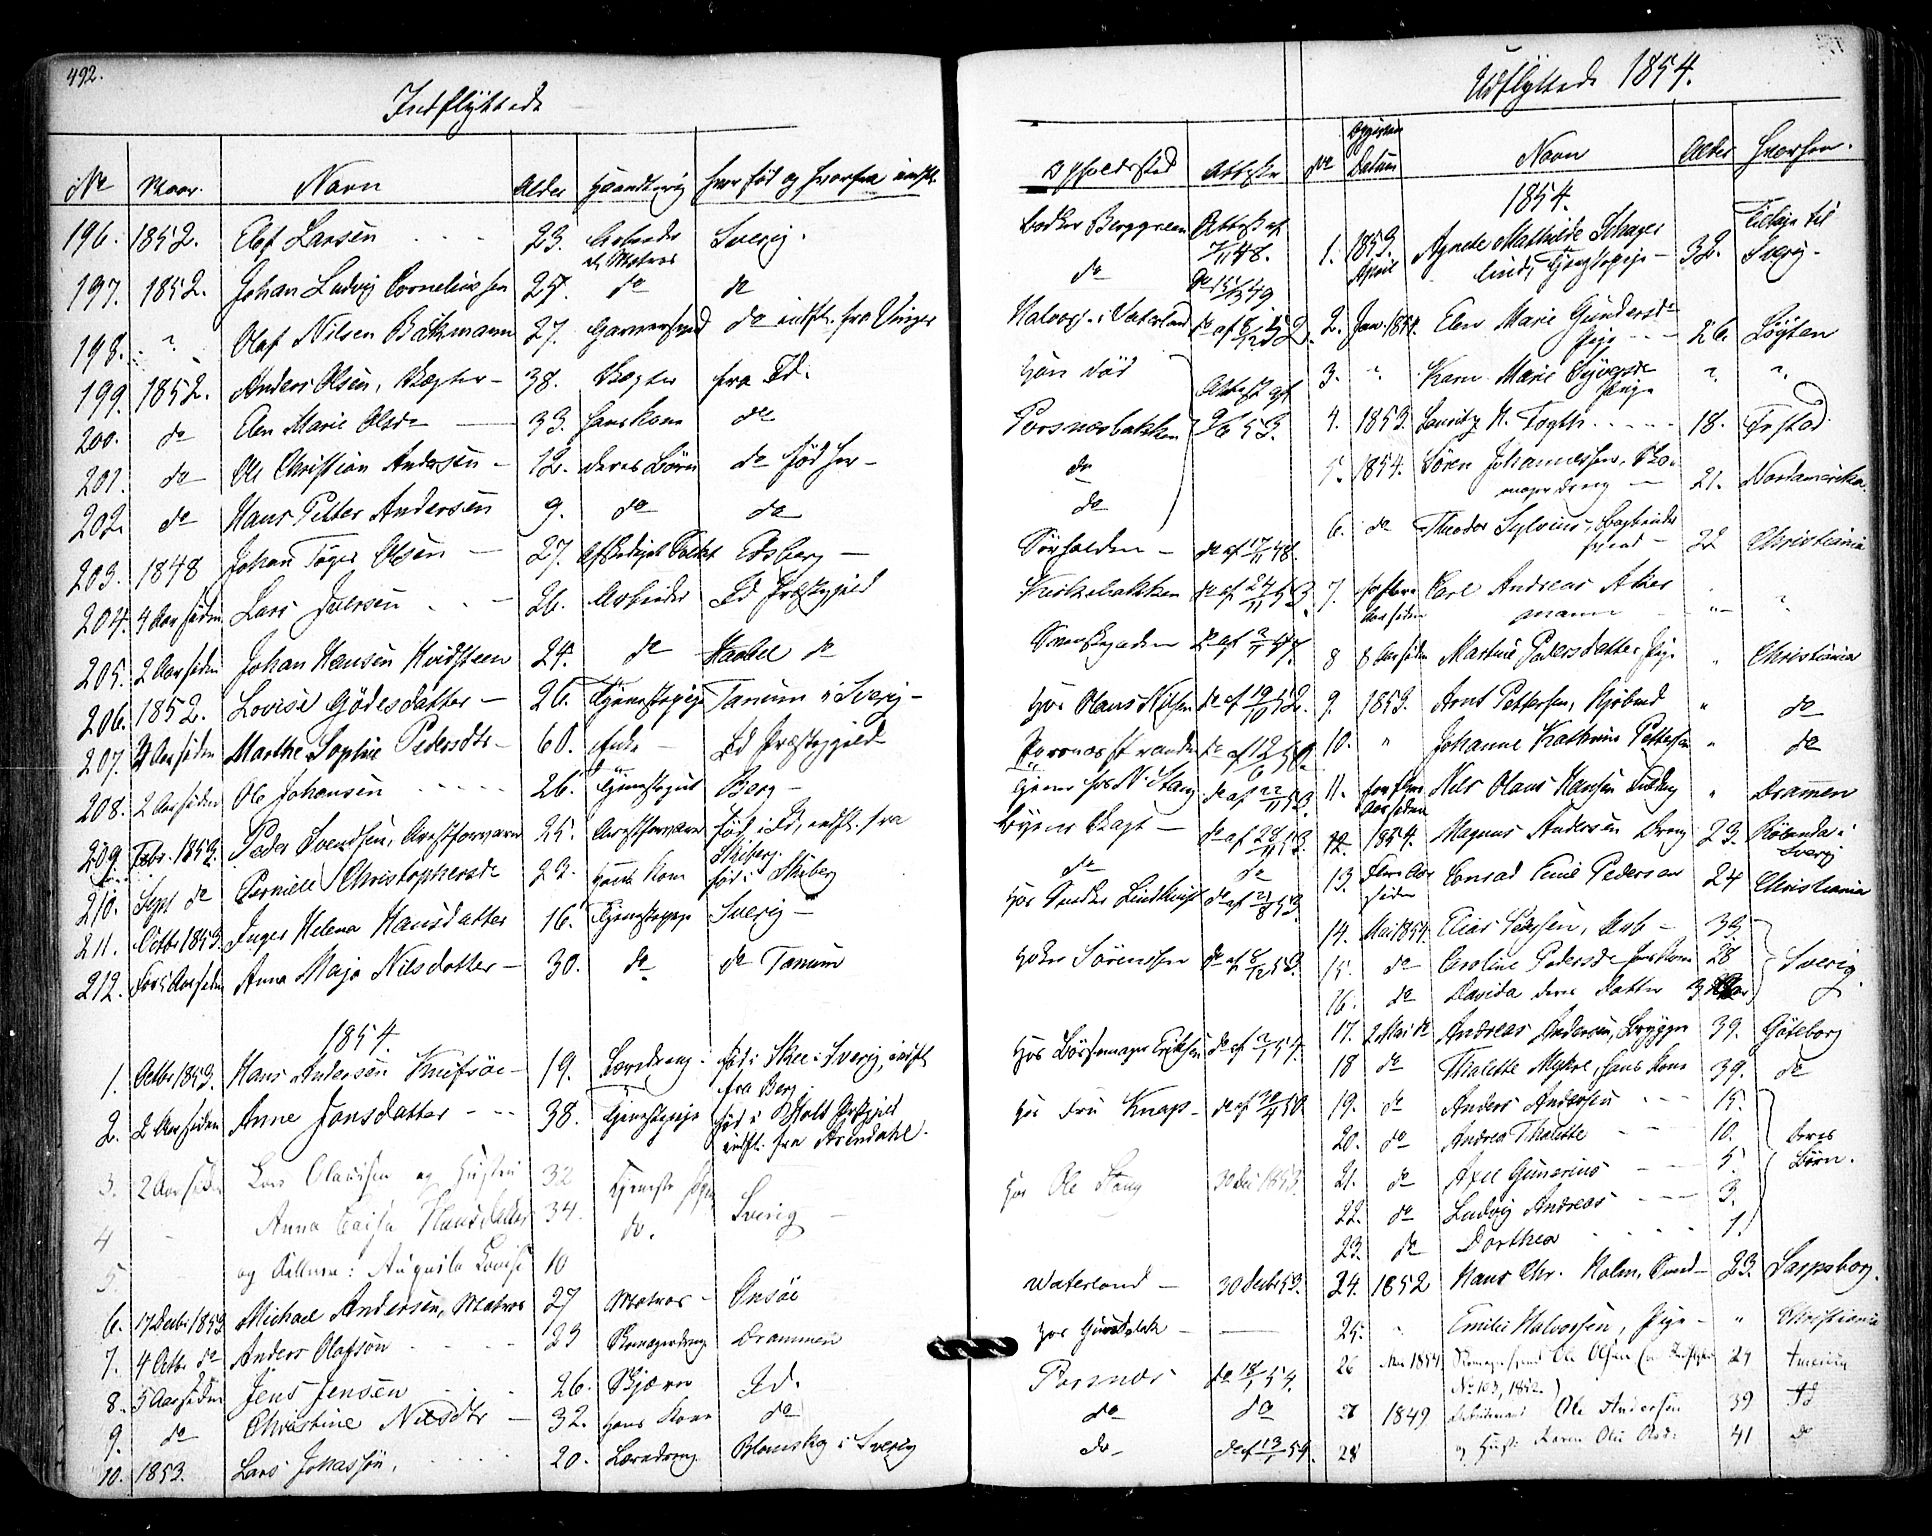 492.
Indflyttede
No Naar. Navn Alder Haandtering hvor født og hvorfra indfl.
196. 1852. Elef Larsen 23. Arbeider Sverig.
197. 1852. Johan Ludvig Corneliussen 25. Matros do do
198. " Olaf Nilsen Bäkmann 27. Garversvend do indfl. fra Vinger
199. 1852. Anders Olsen, Vægter 38. Vægter fra Id.
200. do Elen Marie Olsdr 33. hans Kone do
201. do Ole Christian Andersen 12. deres Børn do født her
202. do Hans Petter Andersen 9. do do
203. 1848 Johan Töger Olsen 27. Edsberg
204. 4 Aar siden Lars Iversen 26. Arbeider Id Præstegjeld
205. 2 Aar siden Johan Hansen Hvidsteen 24. do Haabel do
206. 1852. Lovise Gödesdatter 26. Tjenestepige Tanum i Sverig
207. Aar siden Marthe Sophie Pedersdtr 60. Enke Id Præstegjeld
208. 2 Aar siden Ole Johansen 26. Tjenestegut Berg
209. Febr. 1853. Peder Svendsen, Arestforvarer 25. Arestforvarer født i Id, indfl. fra
Skiberg.
210. Sept do Pernille Christophersdr 23. hans Kone født i Skiberg
211. Octbr 1853. Inger Helena Hansdatter 16. Tjenestepige Sverig
212. Aar siden Anna Maja Nilsdatter 30. do do Tanum
1854.
1. Octbr 1853. Hans Andersen Knifsöe 19. Læredreng født i Skee i Sverig, indfl.
fra Berg
2. 2 Aar siden Anne Jonsdatter 38. Tjenestepige født i Holt Præstegjeld
indfl. fra Arendahl.
3. 2 Aar siden Lars Olaussen og Hustru 32 Tjeneste
4 Anna Caisa Hansdatter 34. do. Sverig
5. og Datteren: Augusta Lovise 10
6. 17 Decbr 1853 Michael Andersen, Matros 27 Matros Onsöe
7. 4 Octbr do Anders Olafsön 23 Skomagerdreng Drammen
8. 5 Aar siden Jens Jensen 26. Id.
9. do Christine Nilsdtr 32. hans Kone do
10. 1853. Lars Johassön. 20. Læredreng Blomskog i Sverig
Opholdssted Attester
Bødker Berggreen Attest af 7/11 48.
do do 15/3 49
Halvors. i Vaterland do af
Hön död
Porsnæsbakken Attest af 9/6 53.
do
do
Sörhalden do af 17/11 48.
Kirkebakken do af 24/11 53.
Svenskegaden do af 2/1 47.
Hos Olaus Nilsen do af 19/10 52.
Porsnæsstranden do af 12/6 50.
Tjener hos N. Stang do af 22/11 53
Byens Vagt do af 28/11 53.
do do
Hos Snedker Lindkvist do af 21/8 53.
Hos Sörensen do af 8/12 53.
Hos Börsemager Eriksen do af 2/1 54.
Hos Fru Knap do af 30/4 50
Hos Ole Stang 30 Dec 1853.
Waterland 30 Decbr 53.
hos Gurstdatr
Porsnæs do 18/1 54.
do do
do do af 13/1 54.
Udflyttede 1854.
No Opgivelses Datum Navn Alder Hvorhen.
1854.
1. 1853. April Agnete Mathilde Schager
lind, Tjenestepige 32. Tilbage til Sverig.
2. Jan. 1854. Elen Marie Gundersdr
Pige 26. Løyten
3. " Karn Marie Syversdr
Pige " "
4. 1853. Lauritz N. Fogth 18. Frstad.
5. 1854. Sören Johannessen, Sko-
magerdreng 21. Nordamerika.
6. do Theodor Sylvius, Bogbinder
svend 22 Christiania
7. for flere Aar siden Carl Andreas Aker
mann " "
8 8 Aar siden Martine Pedersdatter Pige " Christiania
9. 1853. Arnt Pettersen, Kjöbmd " do
10. " Johanne Kathrine Pettersen " do
11. for flere Aar siden Nils Olaus Hansen " Drammen
12. 1854. Magnus Andersen Dreng 23. Rölanda i
Sverig
13. Flere Aar siden Conrad Emil Pedersen 24 Christiania
14. Mai 1854. Elias Larssen, Arb 39
15. do Caroline Pedersdr hans Kone 28 Sverig.
16. do Davida deres Datter 3
17. 2 Mai do Andreas Andersen, Brygger 39. Göteborg
18 do Thalette Myhre, hans Kone 39. do
19. do Anders Andersen 15.
20. do Andrea Thalette 10. deres
21. do Axel Gunerius 5. Børn.
22. do Ludvig Andreas 3.
23. do Dorthea 1.
24. 1852 Hans Chr. Holm, Svend 23. Sarpsborg.
25. " Emilie Halvorsen, Pige " Christiania
26 Mai 1854 Skomagersvend Ole Olsen (se Indflyttede 27 Amerika
No 103, 1852.)
27 1849 Ole Andersen 39 Id
28 og Hust: Karen Olea Olsd: 41 do